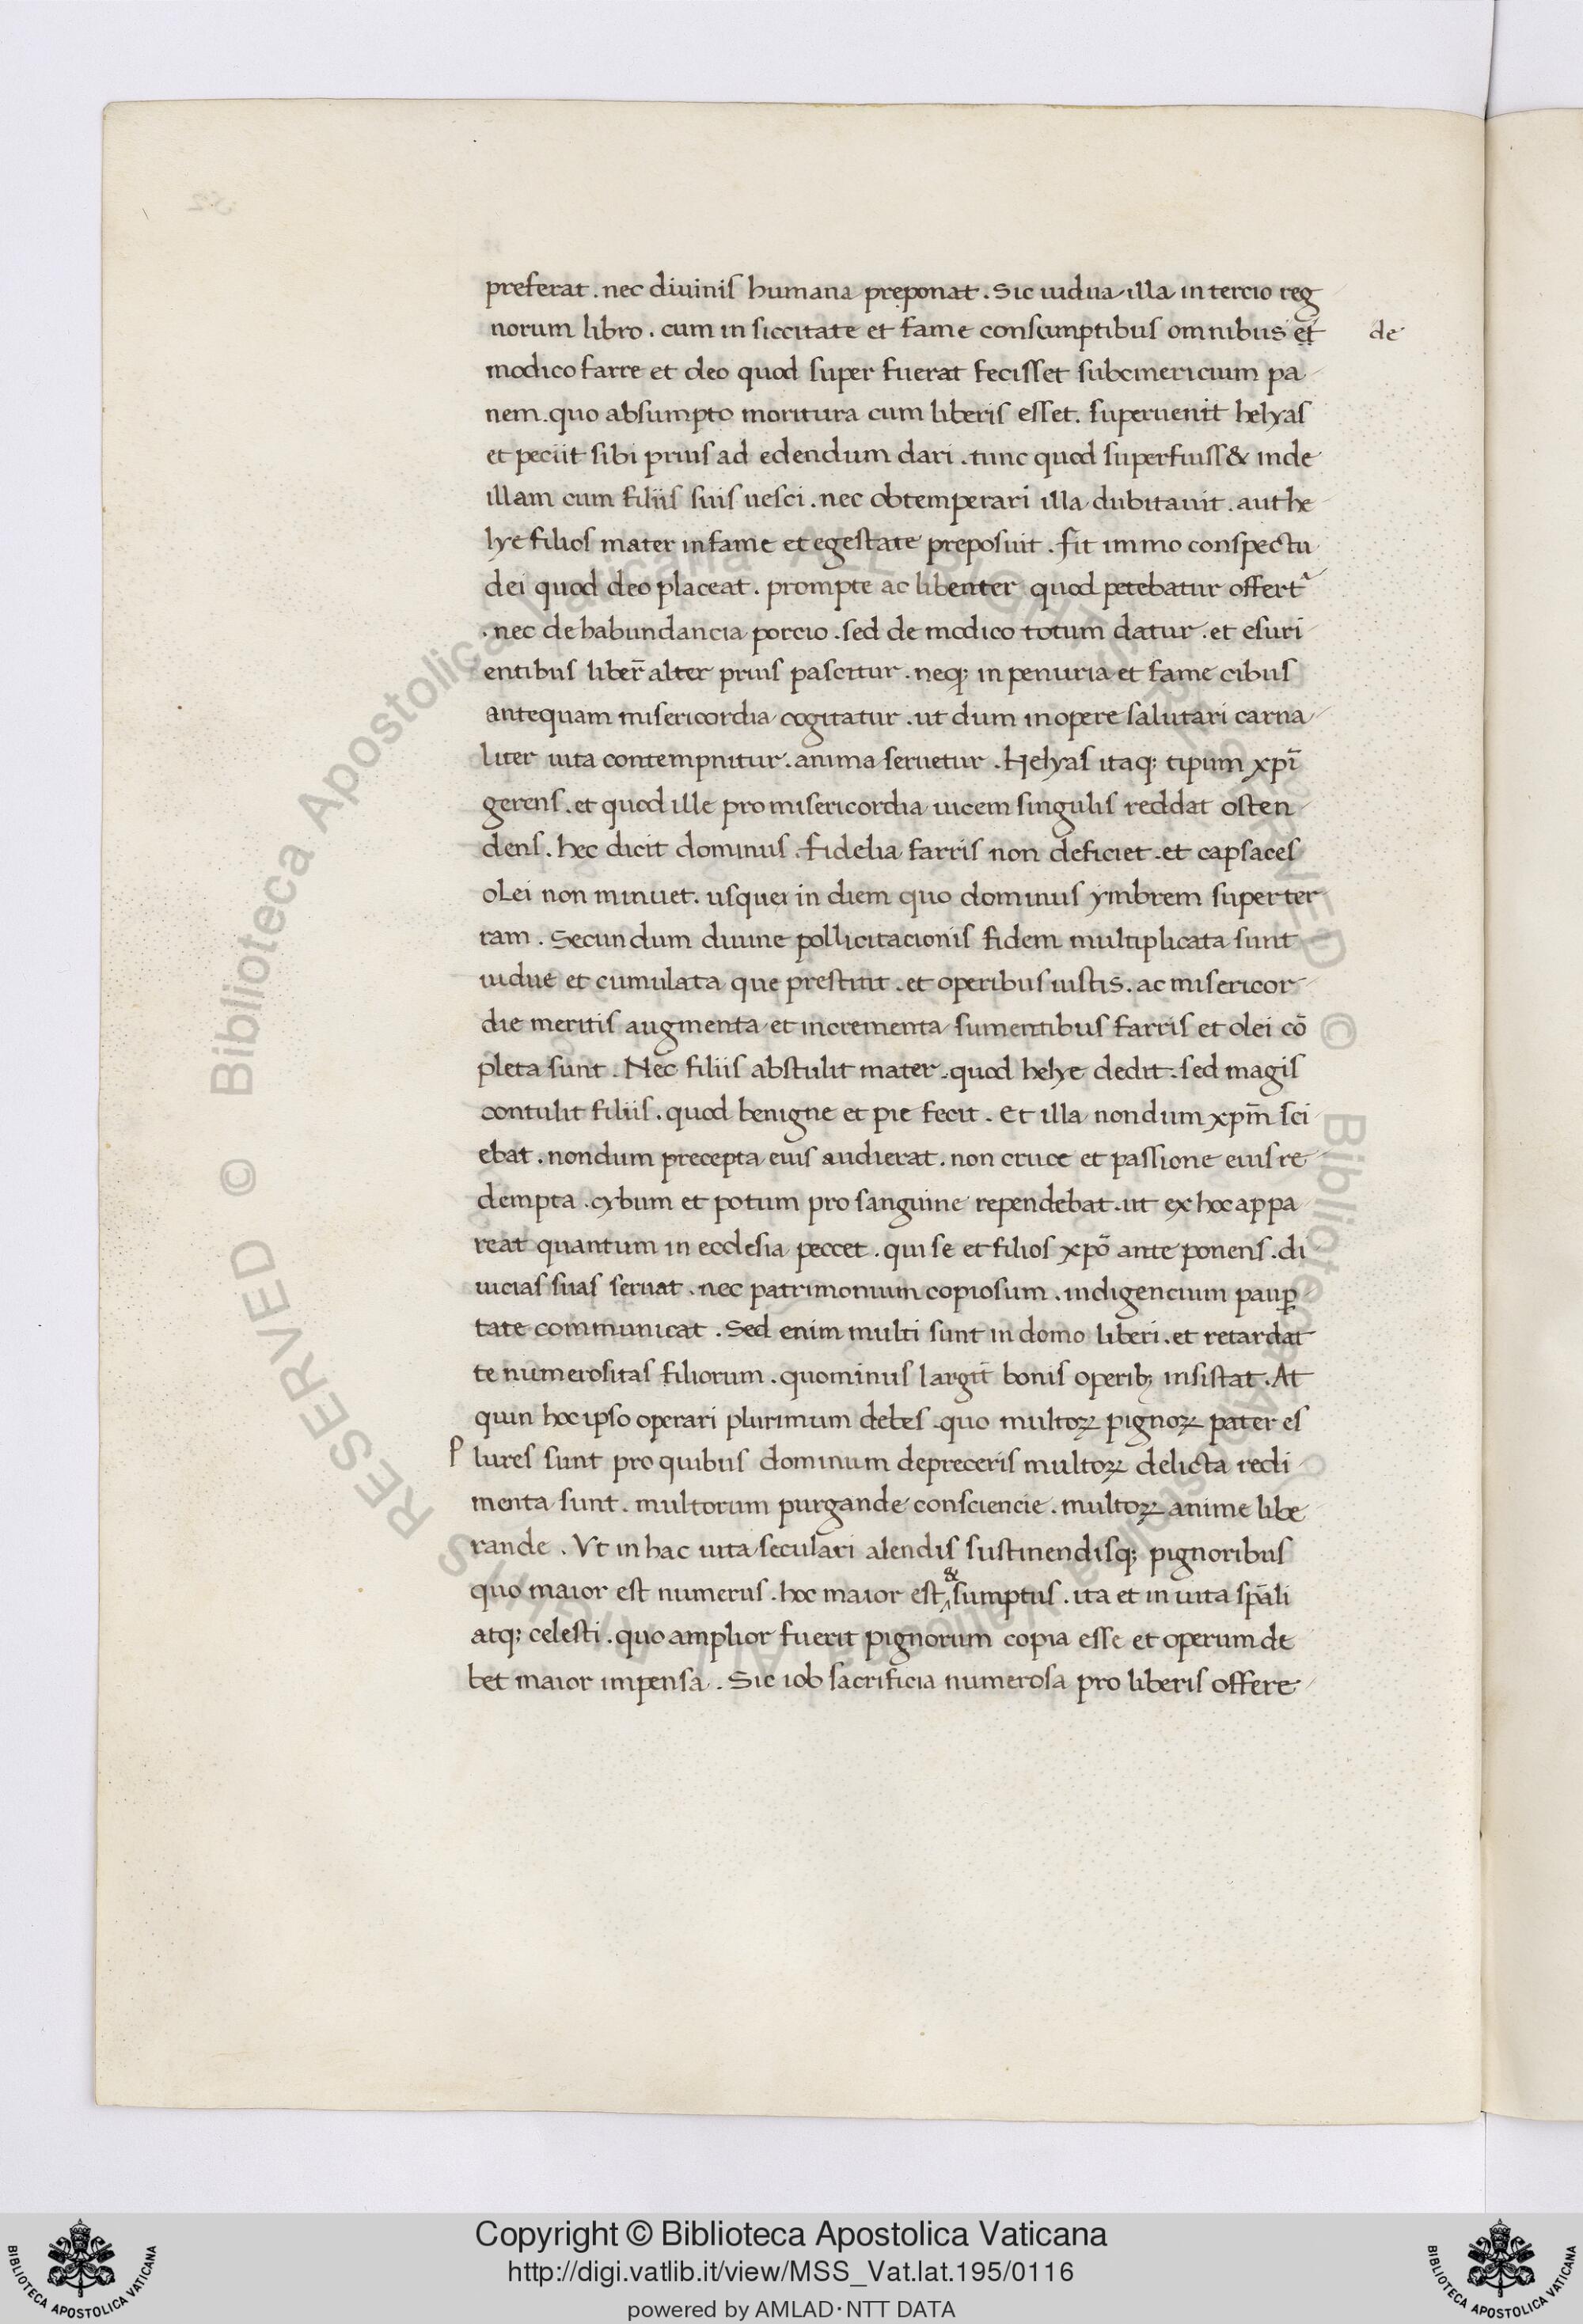 preferat . nec diuinis humana preponat . Sic uidua illa in tercio reg
norum libro . cum in siccitate et fame consumptibus omnibus et de
modico farre et deo quod super fuerat fecisset subcinericium pa
nem . quo absumpto moritura cum liberis esset . superuenit helyas
et peciit sibi prius ad edendum dari . tunc quod superfuiss& inde
illam cum filiis suis uesci . nec obtemperari illa dubitauit . aut he
lye filios mater in fame et egestate preposuit . fit immo conspectu
dei quod deo placeat . prompte ac libenter quod petebatur offert᷑
. nec de habundancia porcio . sed de modico totum datur . et esuri
entibus liber̄ alter prius pascitur . neq; in penuria et fame cibus
antequam misericordia cogitatur . ut dum in opere salutari carna
liter uita contempnitur . anima seruetur . Helyas itaq; tipum xpī
gerens . et quod ille pro misericordia uicem singulis reddat osten
dens . hec dicit dominus . fidelia farris non deficiet . et capsaces
olei non minuet . usquei in diem quo dominus ymbrem super ter
ram . Secundum diuine pollicitacionis fidem multiplicata sunt
uidue et cumulata que prestitit . et operibus iustis . ac misericor
die meritis augmenta et incrementa sumentibus farris et olei cō
pleta sunt . Nec filiis abstulit mater . quod helye dedit . sed magis
contulit filiis . quod benigne et pie fecit . Et illa nondum xpm̄ sci
ebat . nondum precepta eius audierat . non cruce et passione eius re
dempta . cybum et potum pro sanguine rependebat . ut ex hoc appa
reat quantum in ecclesia peccet . qui se et filios xpō ante ponens . di
uicias suas seruat . nec patrimonium copiosum . indigencium paup̲
tate communicat . Sed enim multi sunt in domo liberi . et retardat
te numerositas filiorum . quominus largit̄ bonis operib; insistat . At
quin hoc ipso operari plurimum debes . quo multoꝝ pignoꝝ pater es
P lures sunt pro quibus dominum depreceris multoꝝ delicta redi
menta sunt . multorum purgande consciencie . multoꝝ anime libe
rande . Vt in hac uita seculari alendis sustinendisq; pignoribus
quo maior est numerus . hoc maior est & sumptus . ita et in uita sp̄ali
atq; celesti . quo amplior fuerit pignorum copia esse et operum de
bet maior impensa . Sic iob sacrificia numerosa pro liberis offere
Copyright © Biblioteca Apostolica Vaticana
http://digi.vatlib.it/view/MSS_Vat.lat.195/0116
powered by AMLAD·NTT DATA
BIBLIOTECA APOSTOLICA VATICANA
BIBLIOTECA APOSTOLICA VATICANA